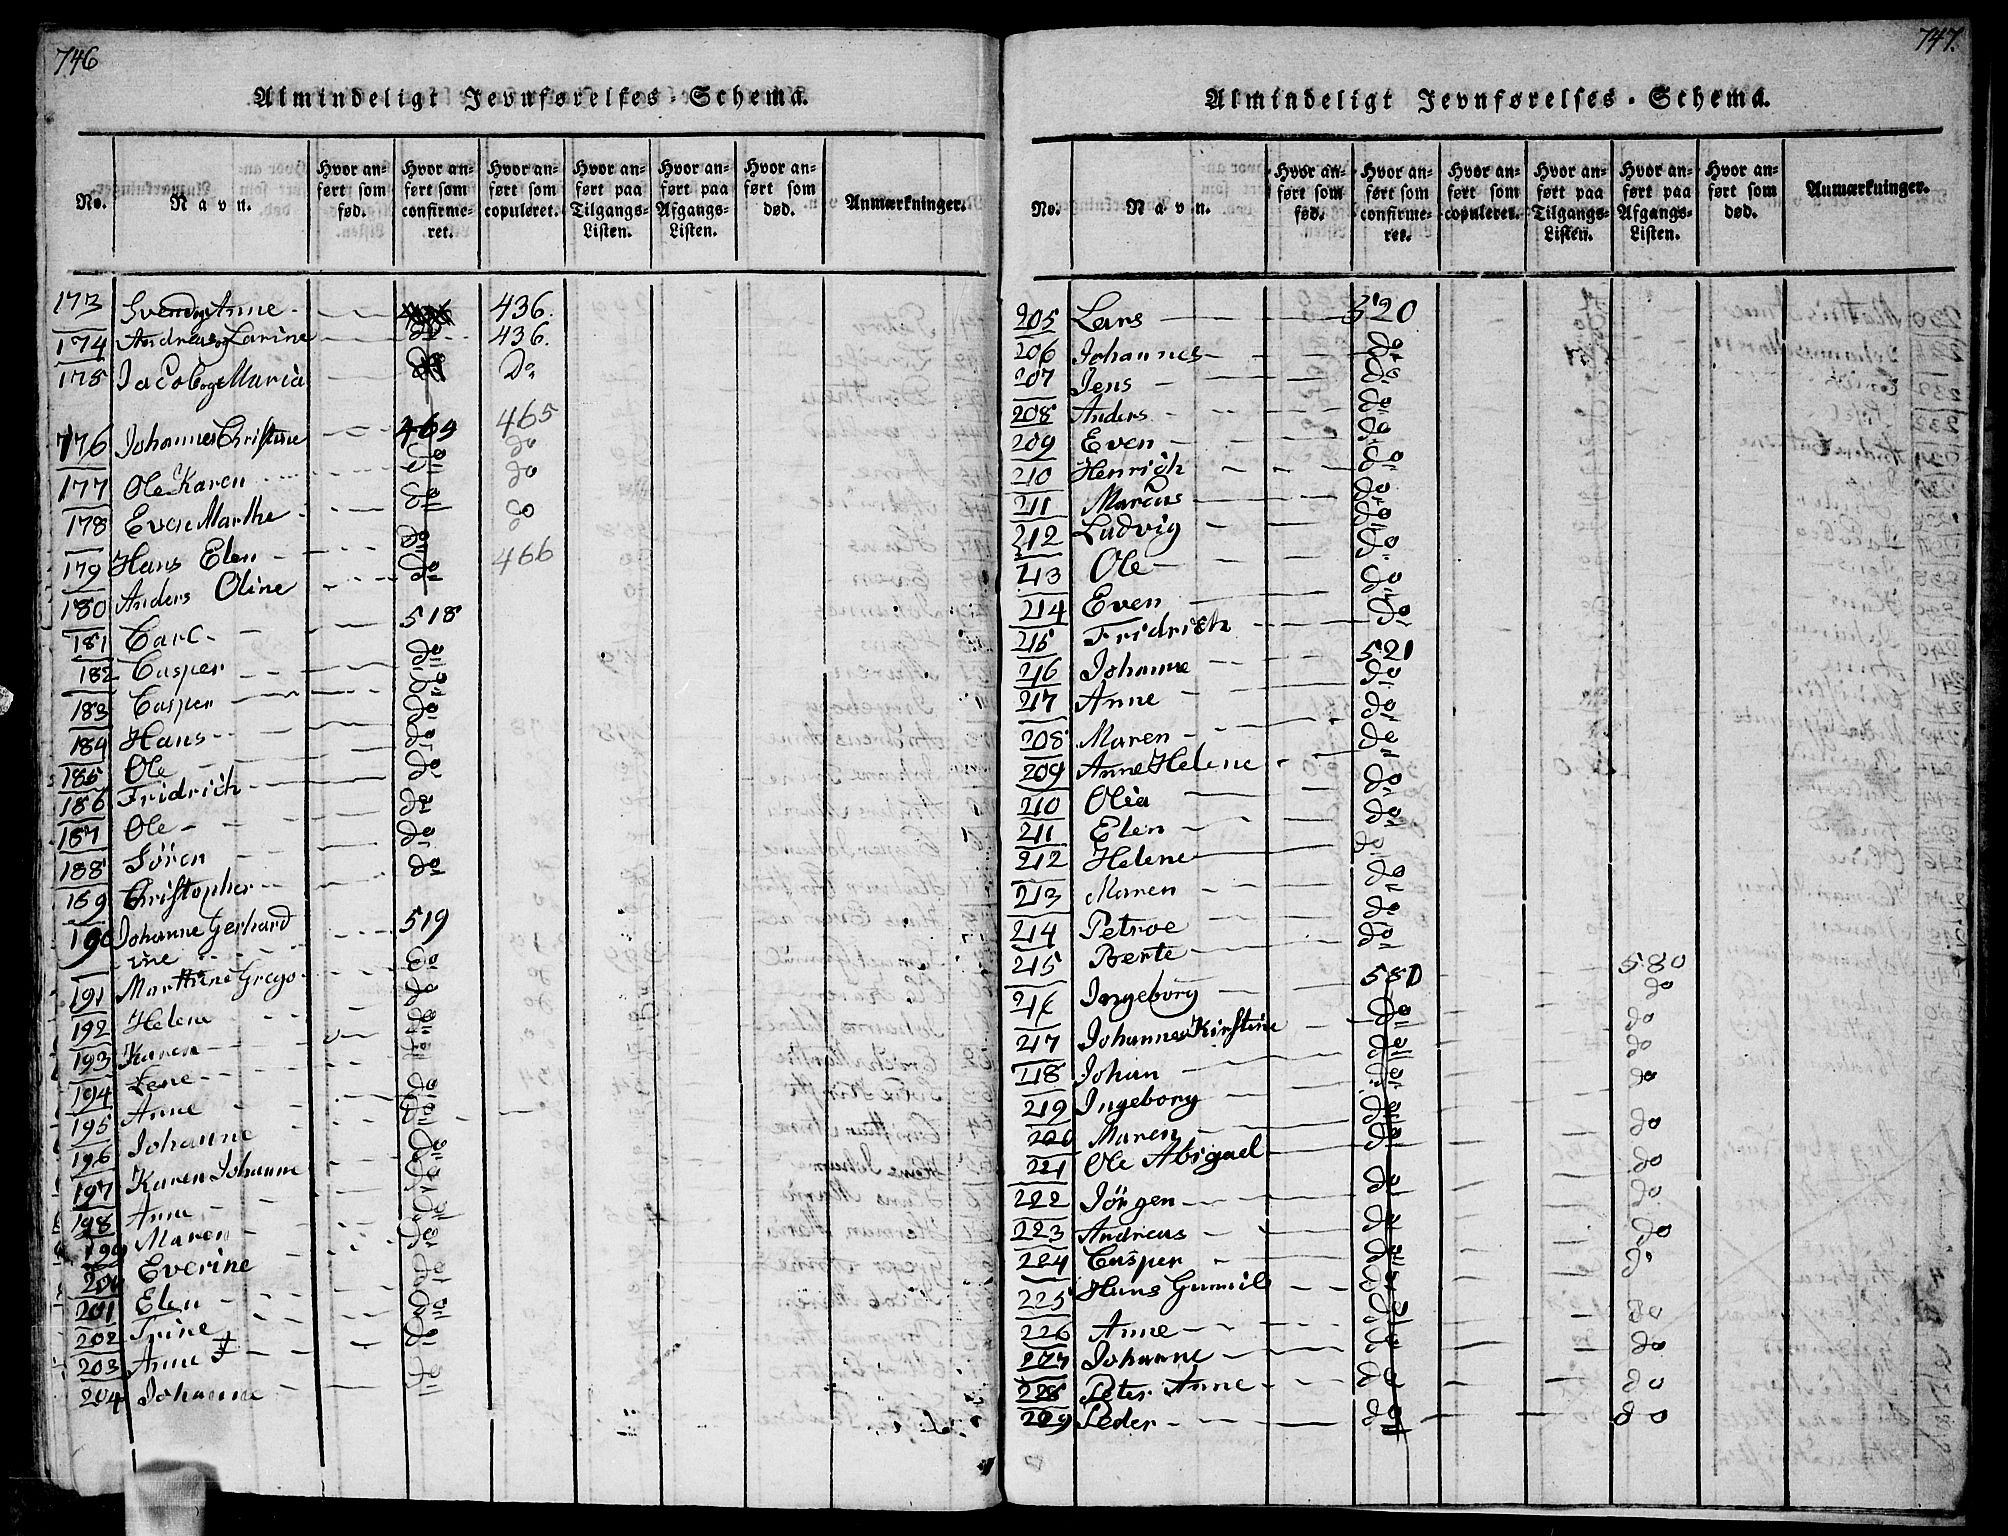 746
Almindeligt Jevnførelses-Schema.
No. Navn. Hvor anført som fød. Hvor anført som confirmeret. Hvor anført som copuleret. Hvor anført paa Tilgangs-Listen. Hvor anført paa Afgangs-Listen. Hvor anført som død. Anmærkninger.
173 Svend og Anne 436.
174 Andreas og Larine 436.
175 Jacob og Maria Do
176 Johannes Christine 465
177 Ole Karen do
178 Even Marthe do
179 Hans Elen do
180 Anders Oline 466
181 Carl 518
182 Casper do
183 Casper do
184 Hans do
185 Ole do
186 Fridrich do
187 Ole do
188 Sören do
189 Christopher do
190 Johanne Gerhard
ine 519
191 Marthine Grego do
192 Helene do
193 Karen do
194 Lene
195 Anne do
196 Johanne do
197 Karen Johanne do
198 Anne do
199 Maren do
200 Everine do
201 Elen do
202 Trine do
203 Anne do
204 Johanne do
747.
Almindeligt Jevnførelses-Schema.
No. Navn. Hvor anført som fød. Hvor anført som confirmeret. Hvor anført som copuleret. Hvor anført paa Tilgangs-Listen. Hvor anført paa Afgangs-Listen. Hvor anført som død. Anmærkninger.
205 Lars 520
206 Johannes do
207 Jens do
208 Anders do
209 Even do
210 Henrich do
211 Marcus do
212 Ludvig do
213 Ole do
214 Even do
215 Fridrich do
216 Johanne 521
217 Anne do
208 Maren do
209 Anne Helene do
210 Olia do
211 Elen do
212 Helene do
213 Maren do
214 Petroe do
215 Berte do
216 Ingeborg 580 580
217 Johannes Kirstine do do
218 Johan do do
219 Ingeborg do do
220 Maren do do
221 Ole Abigael do do
222 Jörgen do do
223 Andreas do do
224 Casper do do
225 Hans Gunnild do do
226 Anne do do
227 Johanne do do
228 Peter Anne do do
229 Peder do do